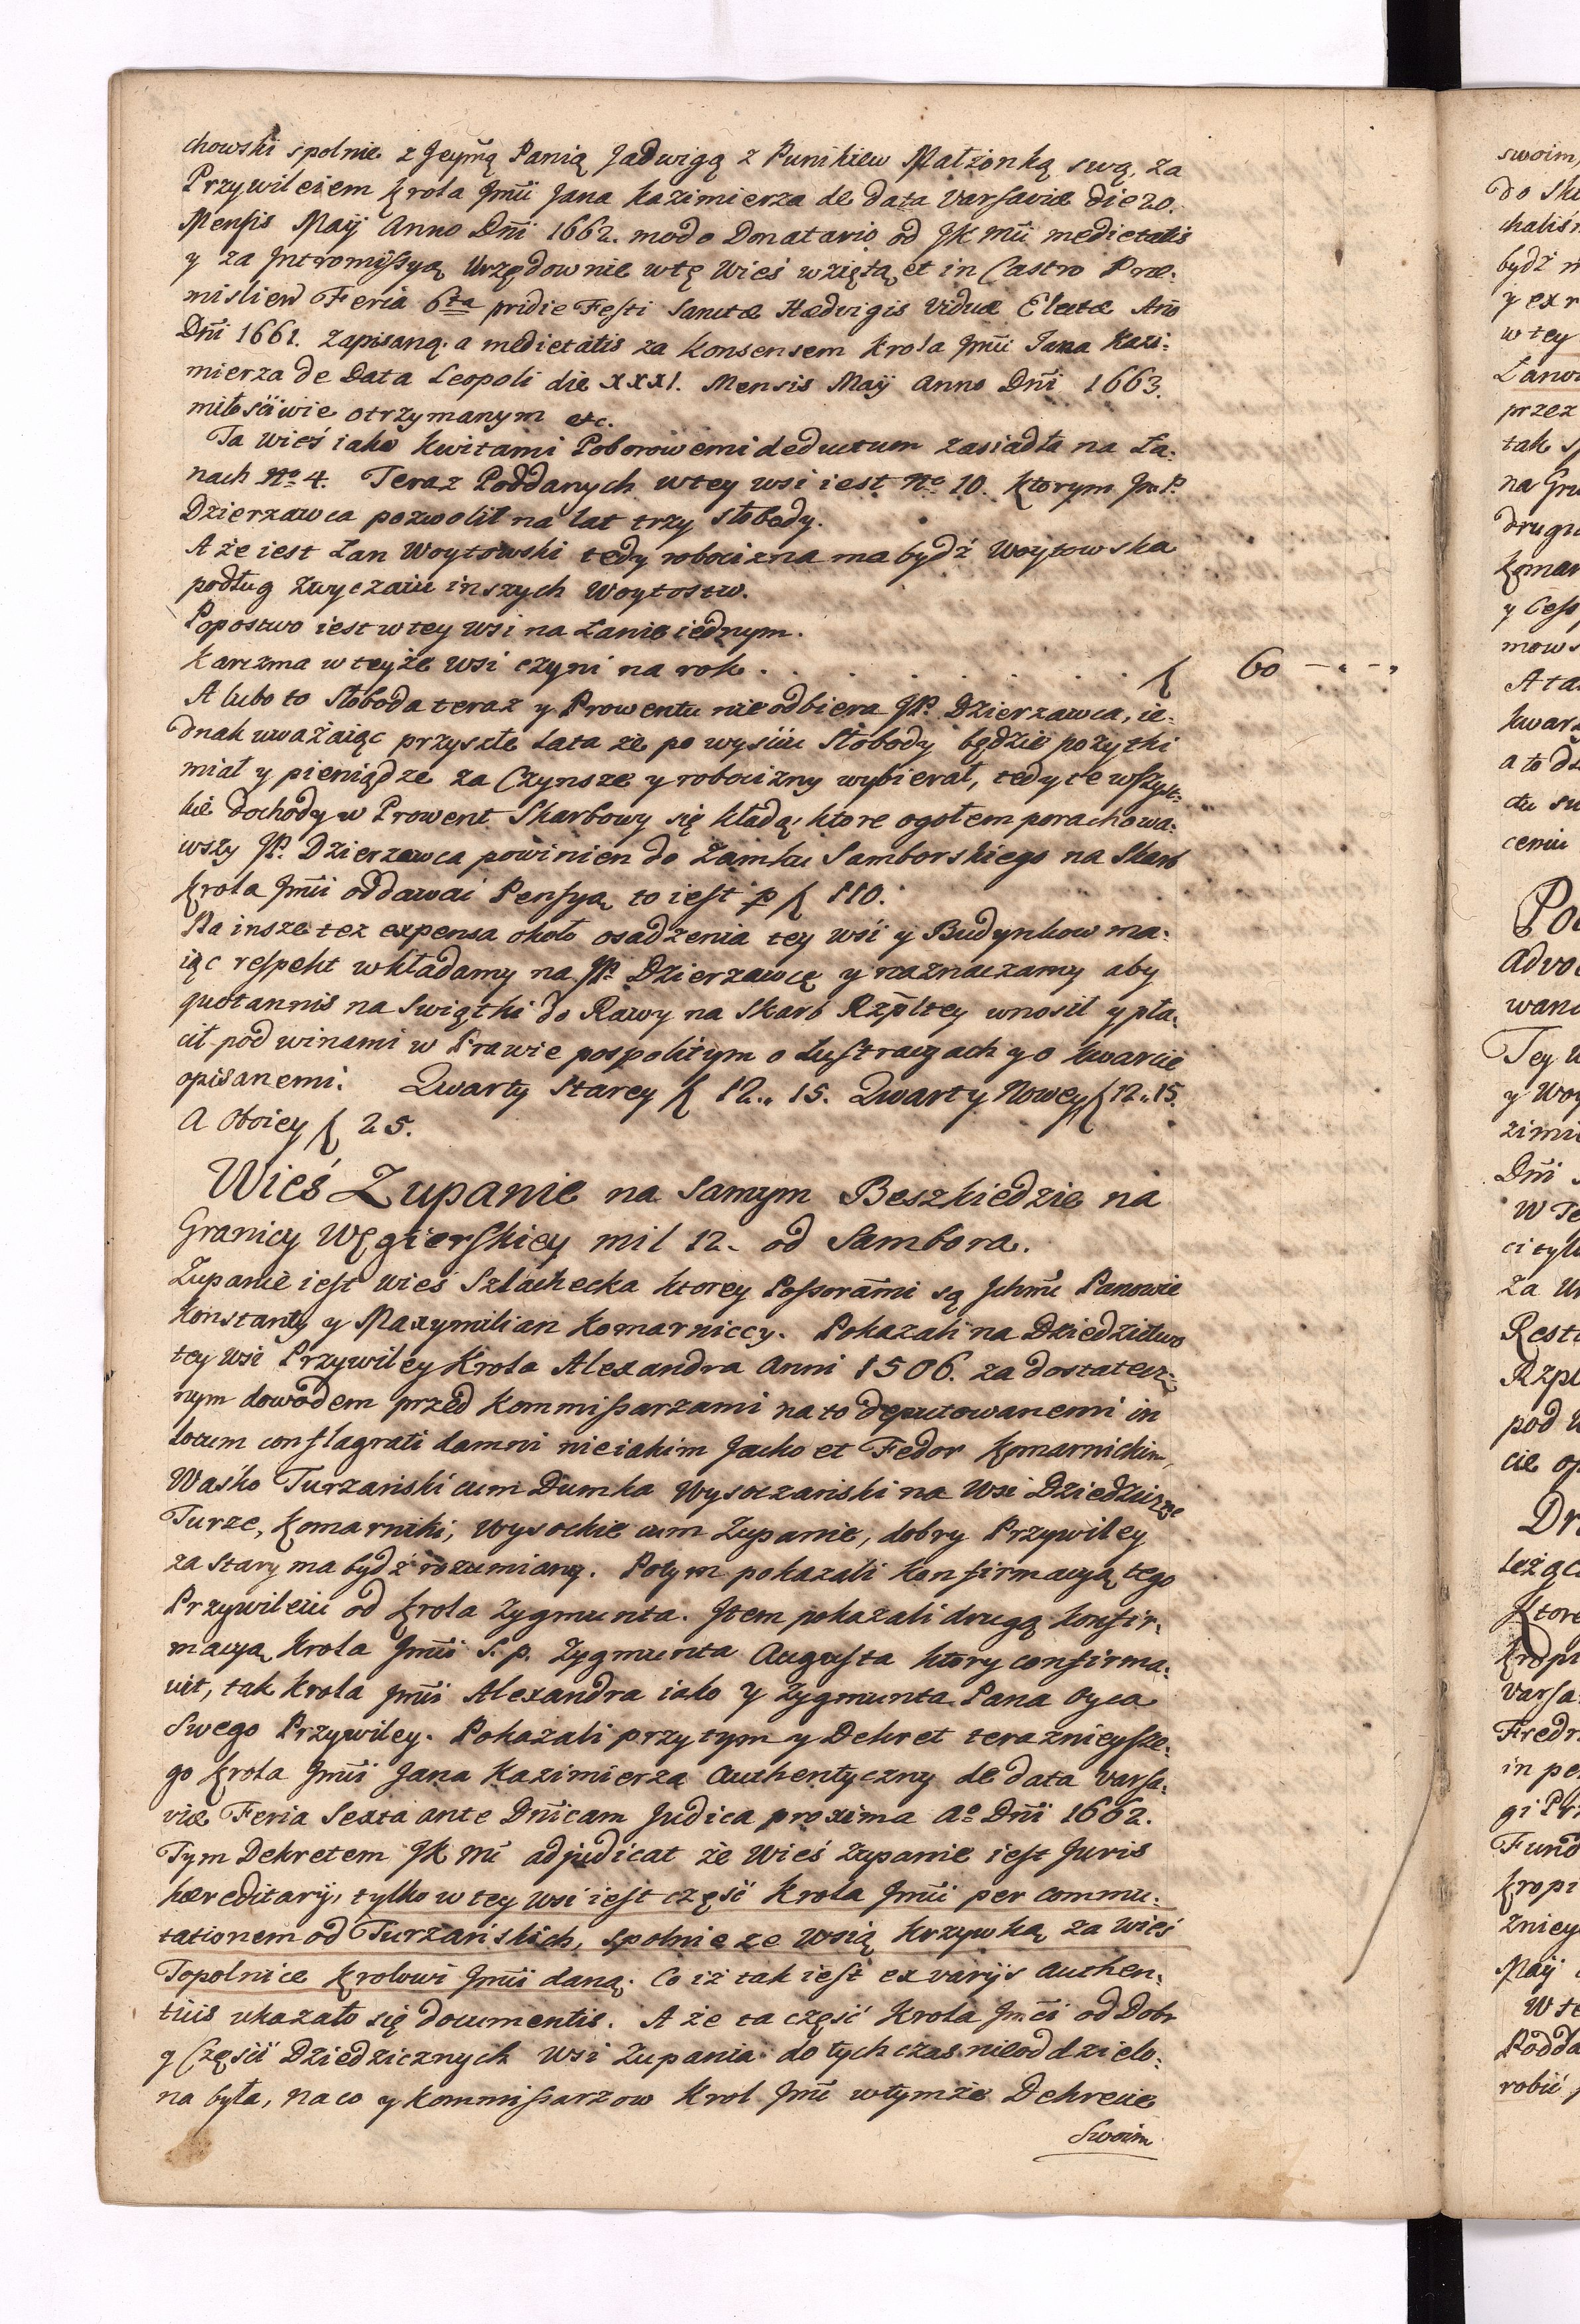 chowski spolnie z Jeymą Panią Jadwigą z Punikiew Małżonką swą, za
Przywileiem Krola Jmći Jana Kazimierza de data Varsaviæ die 20.
Mensis Maÿ Anno Dñi 1662. modo Donatario od JK Mći medietatis
y za Intromissyą Urzędownie wtę Wieś wziętą et in Castro Præ:
mislien Feria 6ta pridie Festi Sanctæ Hædvigis Viduæ Electæ Año
Dñi 1661. zapisaną. a medietatis za Konsensem Krola Jmći Jana Kazi:
mierza de Data Leopoli die XXXI. Mensis Maÿ Anno Dñi 1663.
miłościwie otrzymanym etc.
Ta wieś iako Kwitami Poborowemi deductum zasiadła na Ła:
nach No 4. Teraz Poddanych wtey wsi iest No 10. Ktorym Jm P.
Dzierzawca pozwolił na lat trzy Słobody.
A że iest Łan Woytowski tedy robocizna ma bydź Woytowska
podług zwyczaiu inszych Woytostw.
Popostwo iest wtey Wsi na Łanie iednym.
Karczma w teyże Wsi czyni na rok . . . . . . ƒ 60 — „ — „
A lubo to Słoboda teraz y Prowentu nie odbiera JP. Dzierzawca, ie:
dnak uważaiąc przyszłe Lata że po wysciu Słobody będzie pożytki
miał y pieniądze za Czynsze y robocizny wybierał, tedy te wszyst:
kie dochody w Prowent Skarbowy się kładą, ktore ogołem porachowa:
wszy JP. Dzierzawca powinien do Zamku Samborskiego na Skarb
Krola Jmći oddawać Pensyą to iest p ƒ 110.
Na insze tez expensa około osadzenia tey wsi y Budynkow ma:
iąc respekt wkładamy na JP. Dzierzawcę y naznaczamy aby
quotannis na Swiątki do Rawy na Skarb Rzpltey wnosił y pła:
cił pod winami w Prawie pospolitym o Lustracyach y o Kwarcie
opisanemi. Qwarty Starey ƒ 12 „ 15. Qwarty Nowey ƒ 12 „ 15.
A Oboiey ƒ 25.
Wieś Zupanie na Samym Beszkiedzie na
Granicy Węgierskiey mil 12. od Sambora.
Zupanie iest Wieś Szlachecka ktorey Possorami są Jchmć Panowie
Konstanty y Maxymilian Komarniccy. Pokazali na Dziedzictwo
tey Wsi Przywiley Krola Alexandra Anni 1506. za dostatecz:
nym dowodem przed Kommissarzami na to deputowanemi in
locum conflagrati damni nieiakim Jacko et Fedor Komarnickim,
Waśko Turzański cum Dumka Wysoczański na Wsi Dziedziczne
Turze, Komarniki, Wysockie cum Zupanie, dobry Przywiley
za Stary ma bydź rozumiany. Potym pokazali Konfirmacyą tego
Przywileiu od Krola Zygmunta. Item pokazali drugą Konfir:
macyą Krola Jmći S. p. Zygmunta Augusta ktory confirma:
vit, tak Krola Jmći Alexandra iako y Zygmunta Pana Oyca
Swego Przywiley. Pokazali przytym y Dekret teraznieysze:
go Krola Jmći Jana Kazimierza Authentyczny de data Varsa:
viæ Feria Sexta ante Dñicam Judica proxima Ao Dñi 1662.
Tym Dekretem JK Mć adjudicat że Wieś Zupanie iest Juris
hæreditarÿ, tylko w tey wsi iest część Krola Jmći per commu:
tationem od Turzańskich, spolnie ze Wsią Krzywką za Wieś
Topolnice Krolowi Jmći daną. Co iż tak iest ex varÿs authen:
ticis ukazało się documentis. A że ta część Krola Jmći od Dobr
y Części Dziedzicznych Wsi Zupania do tych czas nieoddzielo:
na była, na co y Kommissarzow Krol Jmć wtymże Dekrecie
Swoim